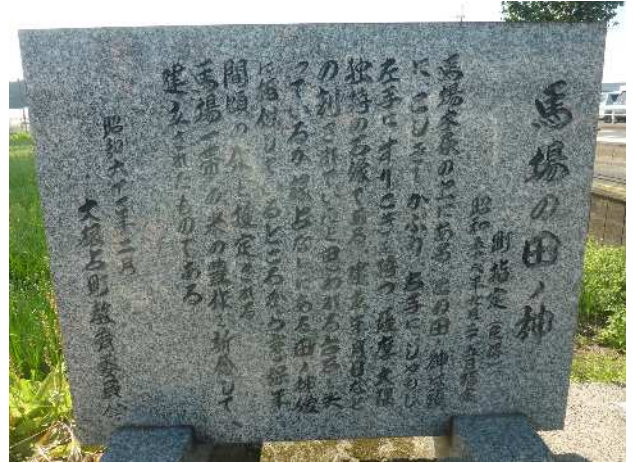 馬場の田ノ神
町指定
馬場 の上にある、この田ノ神は頭
に、こしきをかぶり、右手に、しゃもじ
左手に、すりこぎを持つ、薩摩大隅
独特の石像である。建立年月日など
の刻されていたと思われる台石は失
っているが にある田ノ神
しているところから
間頃の作と推定される
馬場一帯が米の豊作を祈念して、
建立されたものである
昭和六十 年二月
大根占町教育委員会